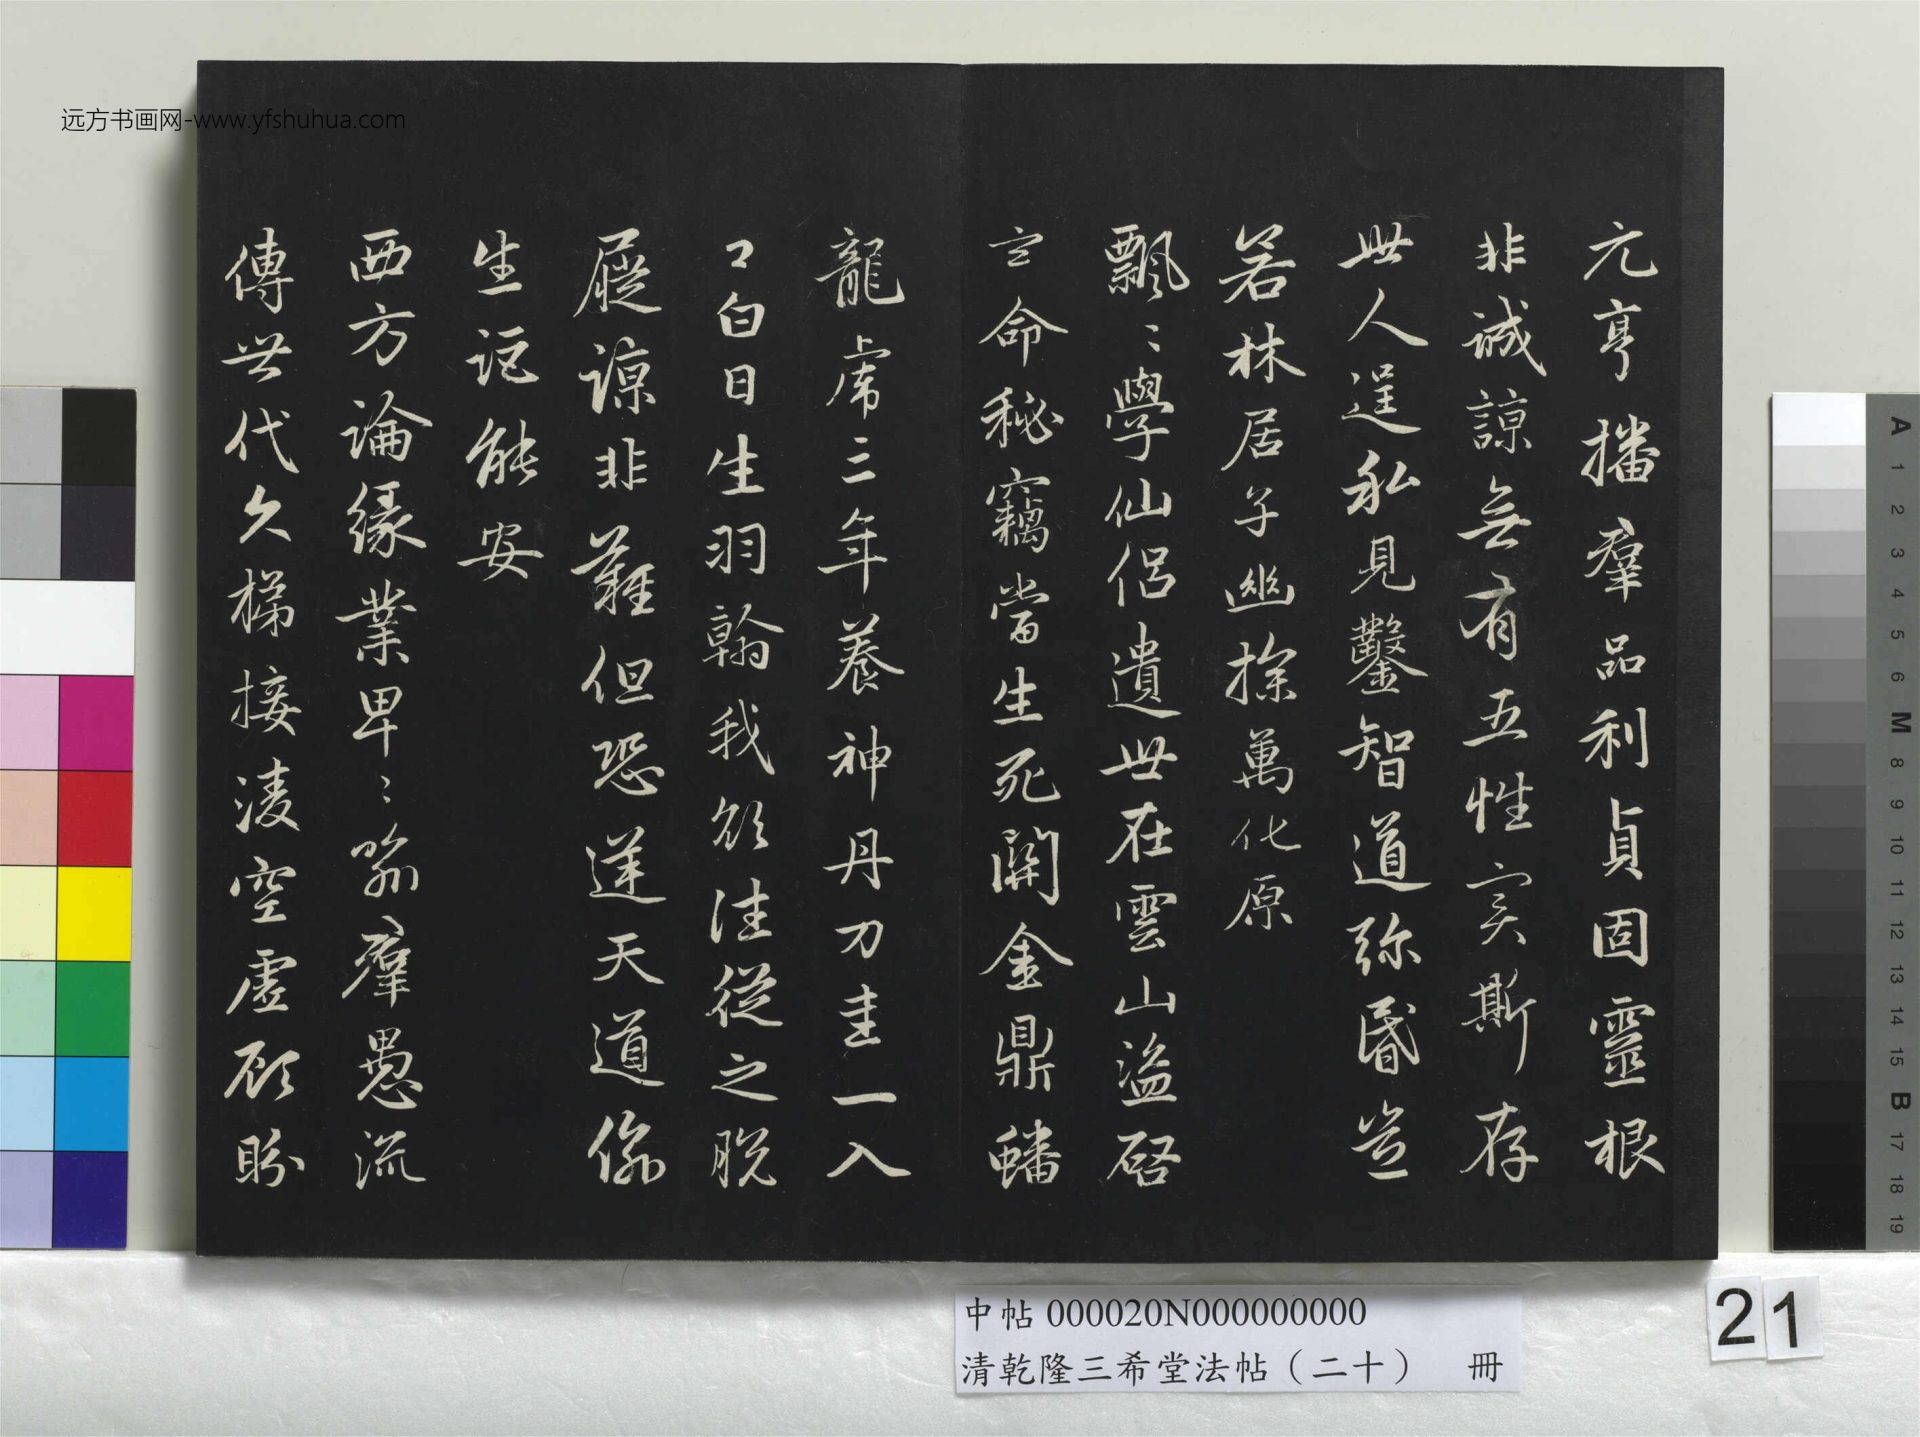 远方书画网-www.yfshuhua.com
元亨播羣品利貞固靈根
非誠諒無有五性實斯存
世人逞私見鑿智道弥昏豈
若林居子幽探萬化原
飄〻學仙侶遺世在雲山盜啓
玄命秘竊當生死關金鼎蟠
龍虎三年養神丹刀圭一入
口白日生羽翰我欲往從之脫
屣諒非難但恐逆天道偷
生詎能安
西方論緣業卑〻喻羣愚流
傳世代久梯接凌空虛顧盼
中帖 000020N000000000
清乾隆三希堂法帖（二十） 冊
21
A 1 2 3 4 5 6 M 8 9 10 11 12 13 14 15 B 17 18 19